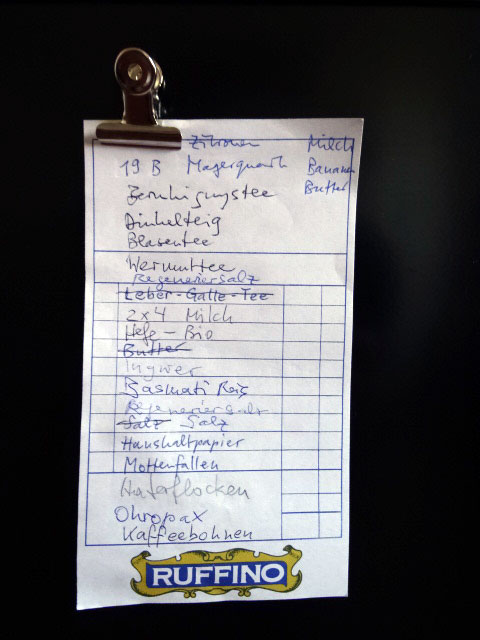 Zitronen Milch
19 B Magerquark Bananen
Butter
Beruhigungstee
Dinkelteig
Blasentee
Wermuttee
Regeneriersalz
Leber-Galle-Tee
2x4 Milch
Hefe - Bio
Butter
Ingwer
Basmati Reis
Regeneriersalz
Salz Salz
Haushaltpapier
Mottenfallen
Haferflocken
Ohropax
Kaffeebohnen
RUFFINO